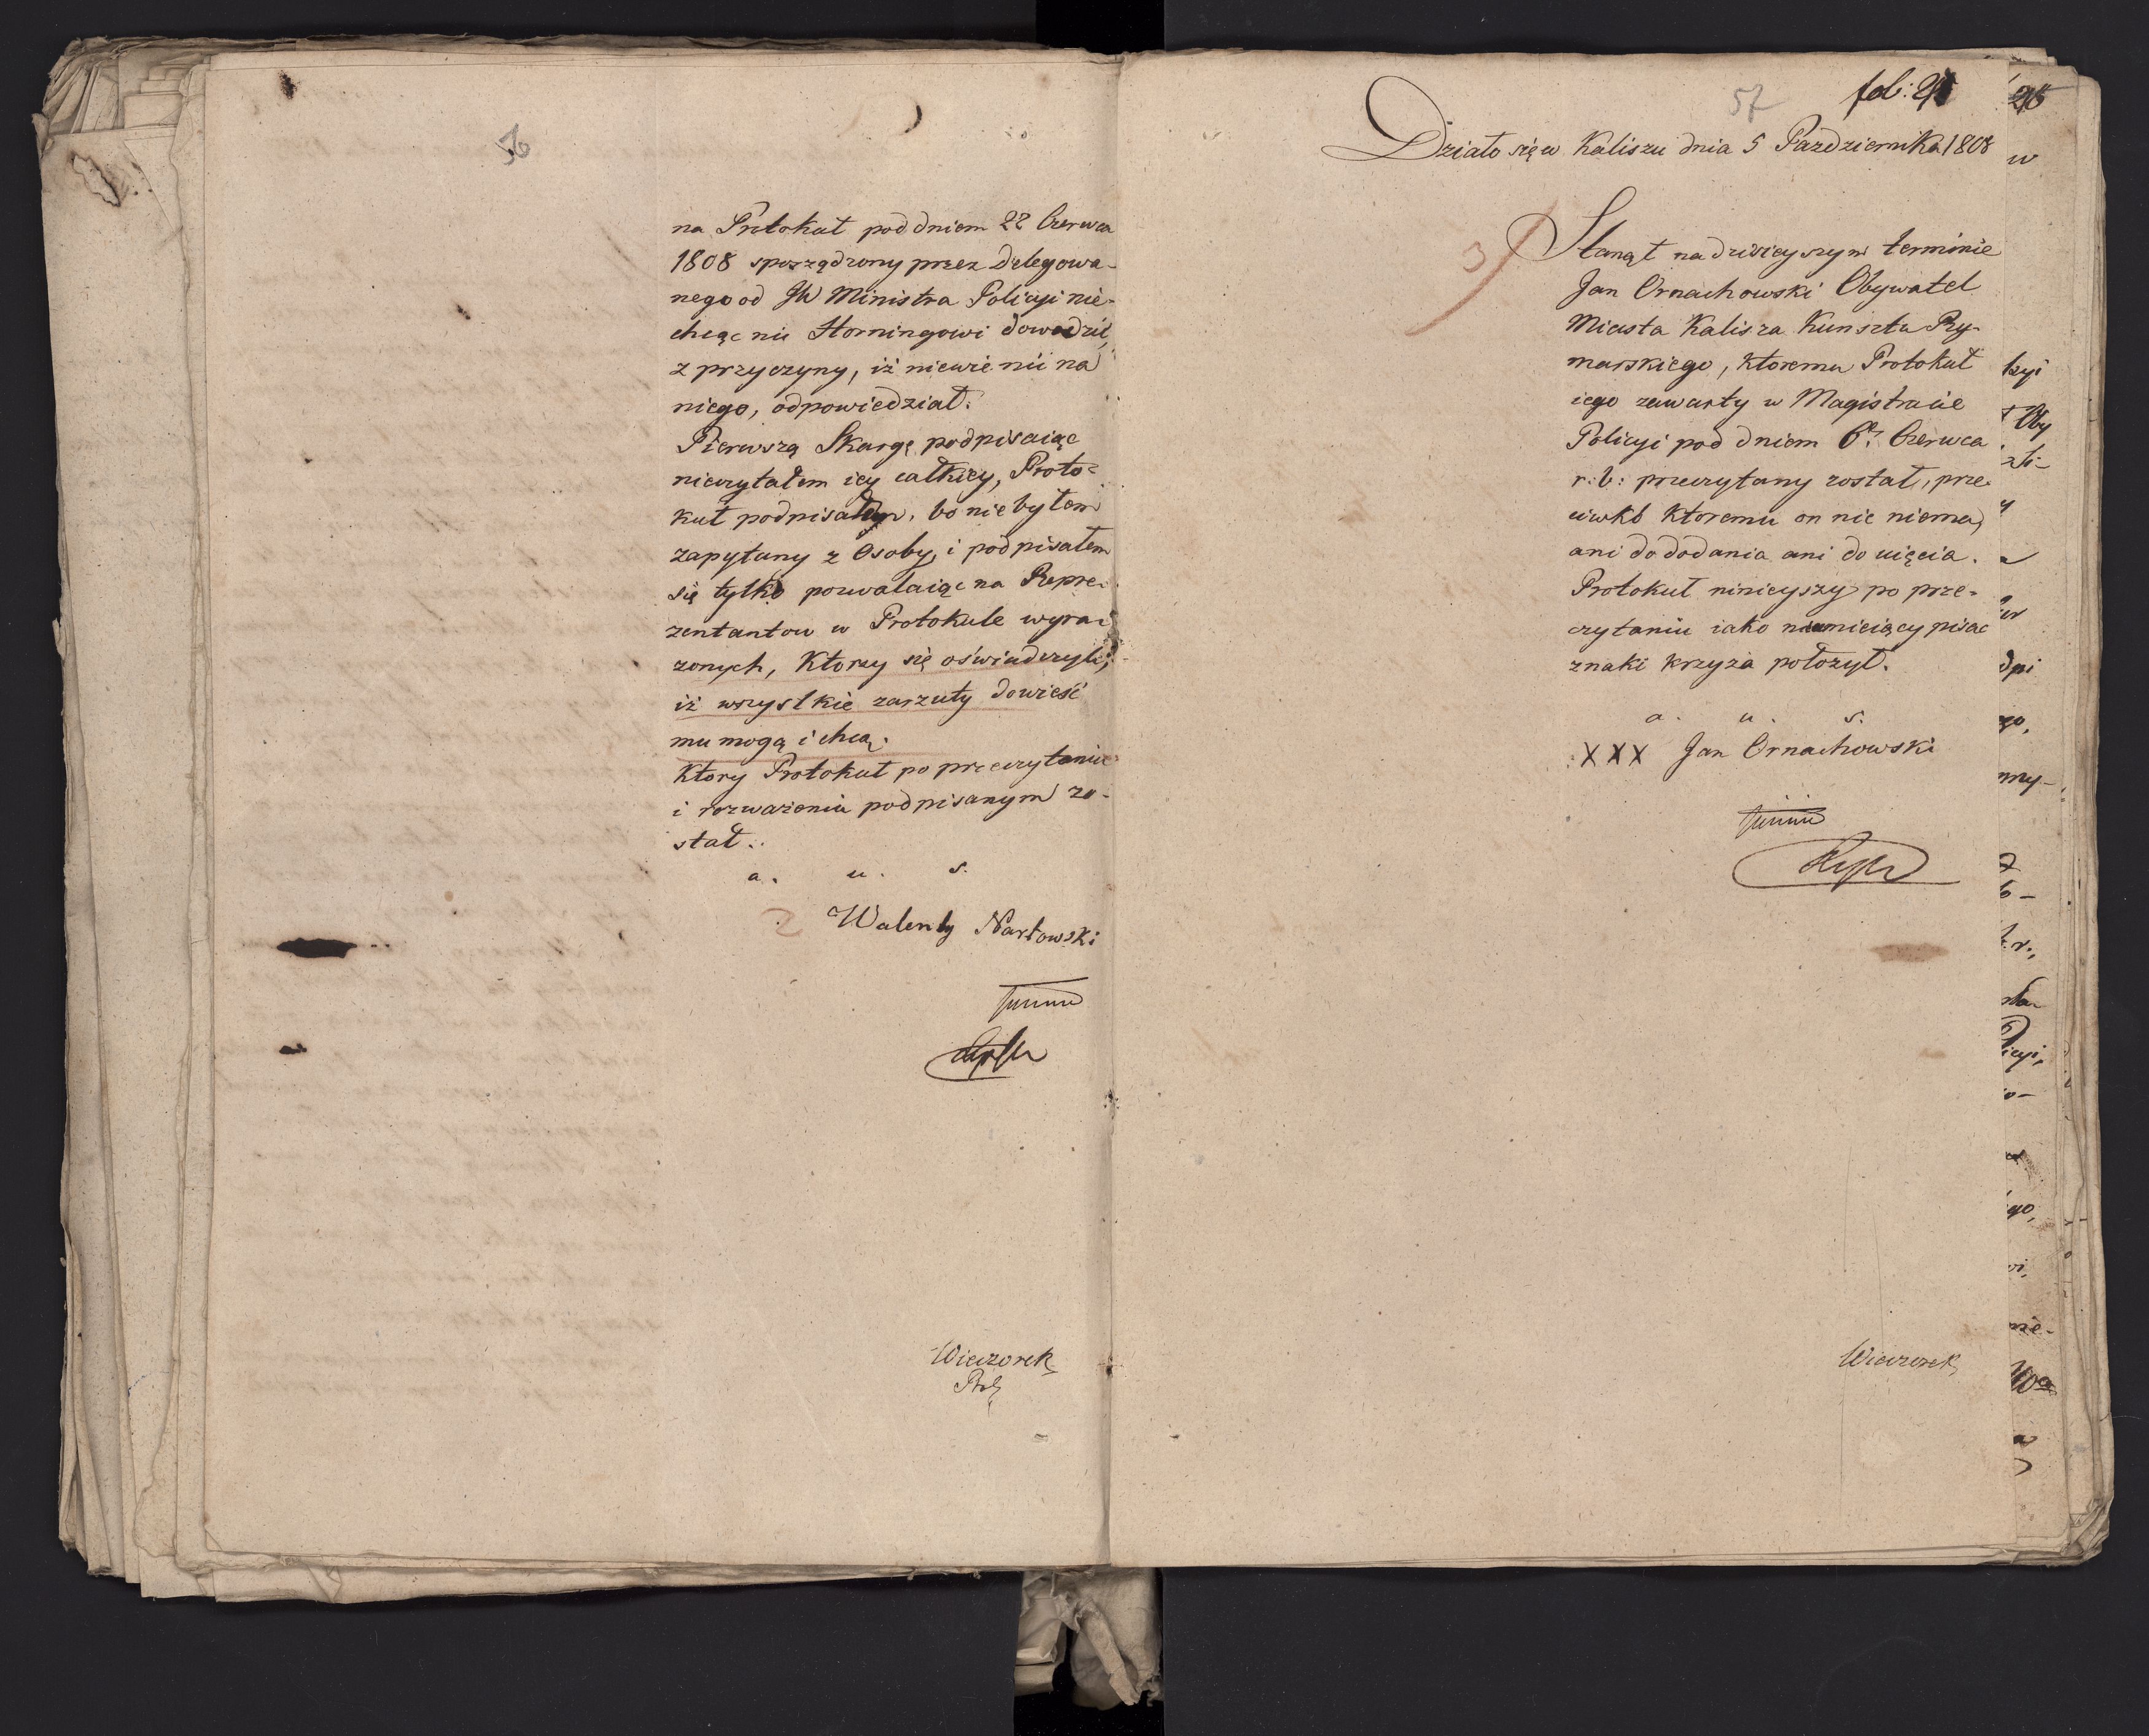 56
na Protokuł pod dniem 22 Czerwca
1808 sporządzony przez Delegowa-
nego od JW Ministra Policyi nie-
chcąc nic Horningowi dowodzić,
z przyczyny, iż niewie nic na
niego, odpowiedział:
Pierwszą Skargę podpisaiąc
nieczytałem iey całkiey, Proto-
kuł podpisałem, bo nie byłem
zapytany z Osoby, i podpisałem
się tylko pozwalaiąc na Repre-
zentantow w Protokule wyra-
zonych, Ktorzy się oświadczyli,
iż wszystkie zarzuty dowieść
mu mogą i chcą.
Ktory Protokuł po przeczytaniu
i rozwazeniu podpisanym zo-
stał.
a. u. s.
2 Walenty Nartowski
Wieczorek
57 fol: 2
Działo się w Kaliszu dnia 5 Pazdziernika 1808
3/ Stanął na dzisieyszym terminie
Jan Ornachowski Obywatel
Miasta Kalisza Kunsztu Ry-
marskiego, ktoremu Protokuł
iego zawarty w Magistracie
Policyi pod dniem 6. Czerwca
r: b: przeczytany został, prze-
ciwko ktoremu on nic niema,
ani do dodania ani do uięcia.
Protokuł ninieyszy po prze-
czytaniu iako nieumieiący pisac
znaki krzyża położył.
a. u. s.
XXX Jan Ornachowski
Wieczorek